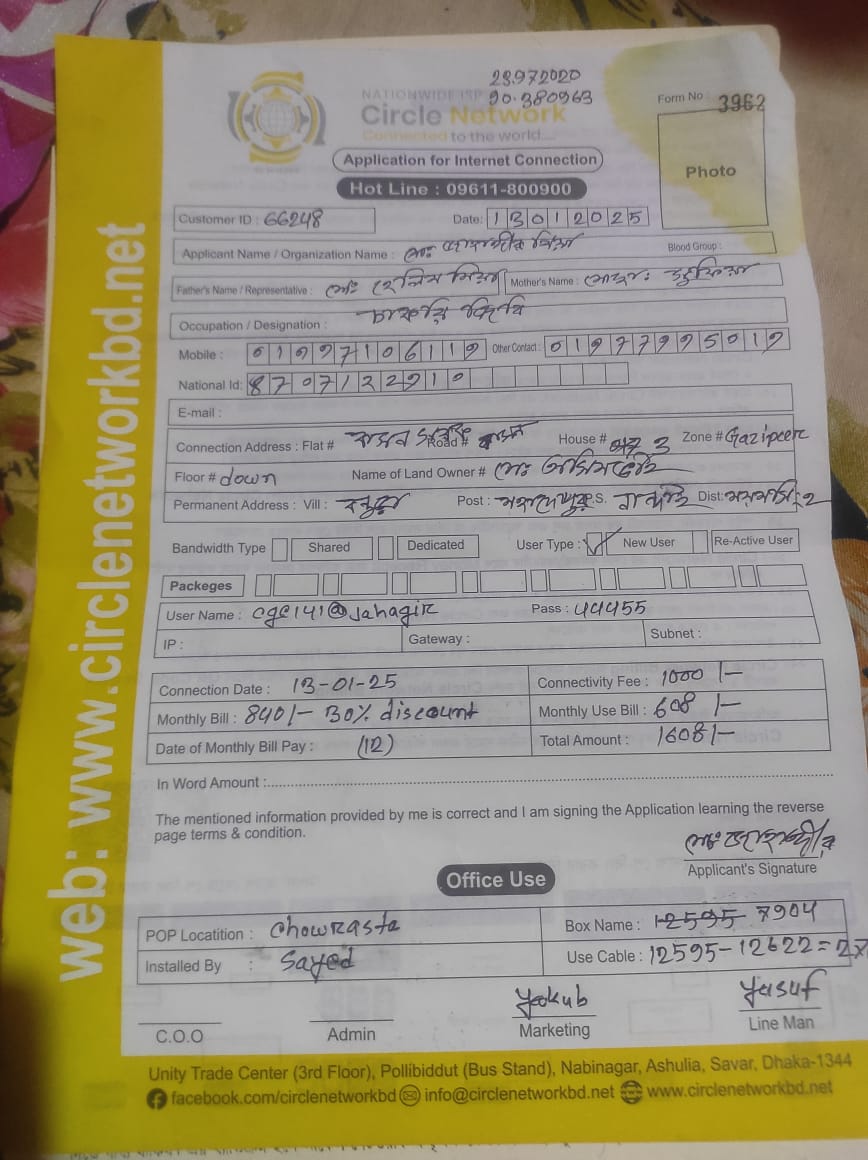 23.972020
90.380963
NATIONWIDE ISP
Circle Network
Connected to the world....
Form No : 3962
Application for Internet Connection
Photo
Hot Line : 09611-800900
Customer ID : 66248 Date: 13012025
Applicant Name / Organization Name : মোঃ
Blood Group :
Father's Name / Representative : মোঃ সেলিম মিয়া Mother's Name : মোছাঃ
Occupation / Designation : চাকরি
Mobile : Other Contact :
National Id: 8707122910
E-mail :
Connection Address : Flat # Road # House # Zone # Gazipur
Floor # down Name of Land Owner # মোঃ
Permanent Address : Vill : Post : P.S. Dist:
Bandwidth Type Shared Dedicated User Type : New User Re-Active User
Packeges
User Name : Pass : 44455
IP : Gateway : Subnet :
Connection Date : 13-01-25 Connectivity Fee : 1000/-
Monthly Bill : 840/- 30% discount Monthly Use Bill : 608/-
Date of Monthly Bill Pay : (12) Total Amount : 1608/-
In Word Amount :
The mentioned information provided by me is correct and I am signing the Application learning the reverse
page terms & condition.
Applicant's Signature
Office Use
POP Locatition : Chowrasta Box Name : 12595 7904
Installed By : Sayed Use Cable : 12595-12622=27
Yeakub Yasuf
C.O.O Admin Marketing Line Man
Unity Trade Center (3rd Floor), Pollibiddut (Bus Stand), Nabinagar, Ashulia, Savar, Dhaka-1344
facebook.com/circlenetworkbd info@circlenetworkbd.net www.circlenetworkbd.net
web: www.circlenetworkbd.net